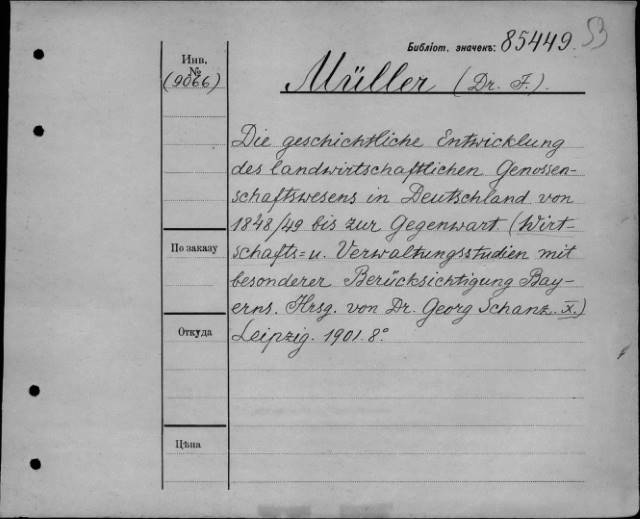 Библіот. значекъ: 85449. 53
Инв.
№
(9066)
Müller (Dr. F.).
Die geschichtliche Entwicklung
des landwirtschaftlichen Genossen-
schaftswesens in Deutschland von
1848/49 bis zur Gegenwart (Wirt-
По заказу
schafts= u. Verwaltungsstudien mit
besonderer Berücksichtigung Bay-
erns. Hrsg. von Dr. Georg Schanz. X.)
Откуда
Leipzig. 1901. 8°
Цѣна